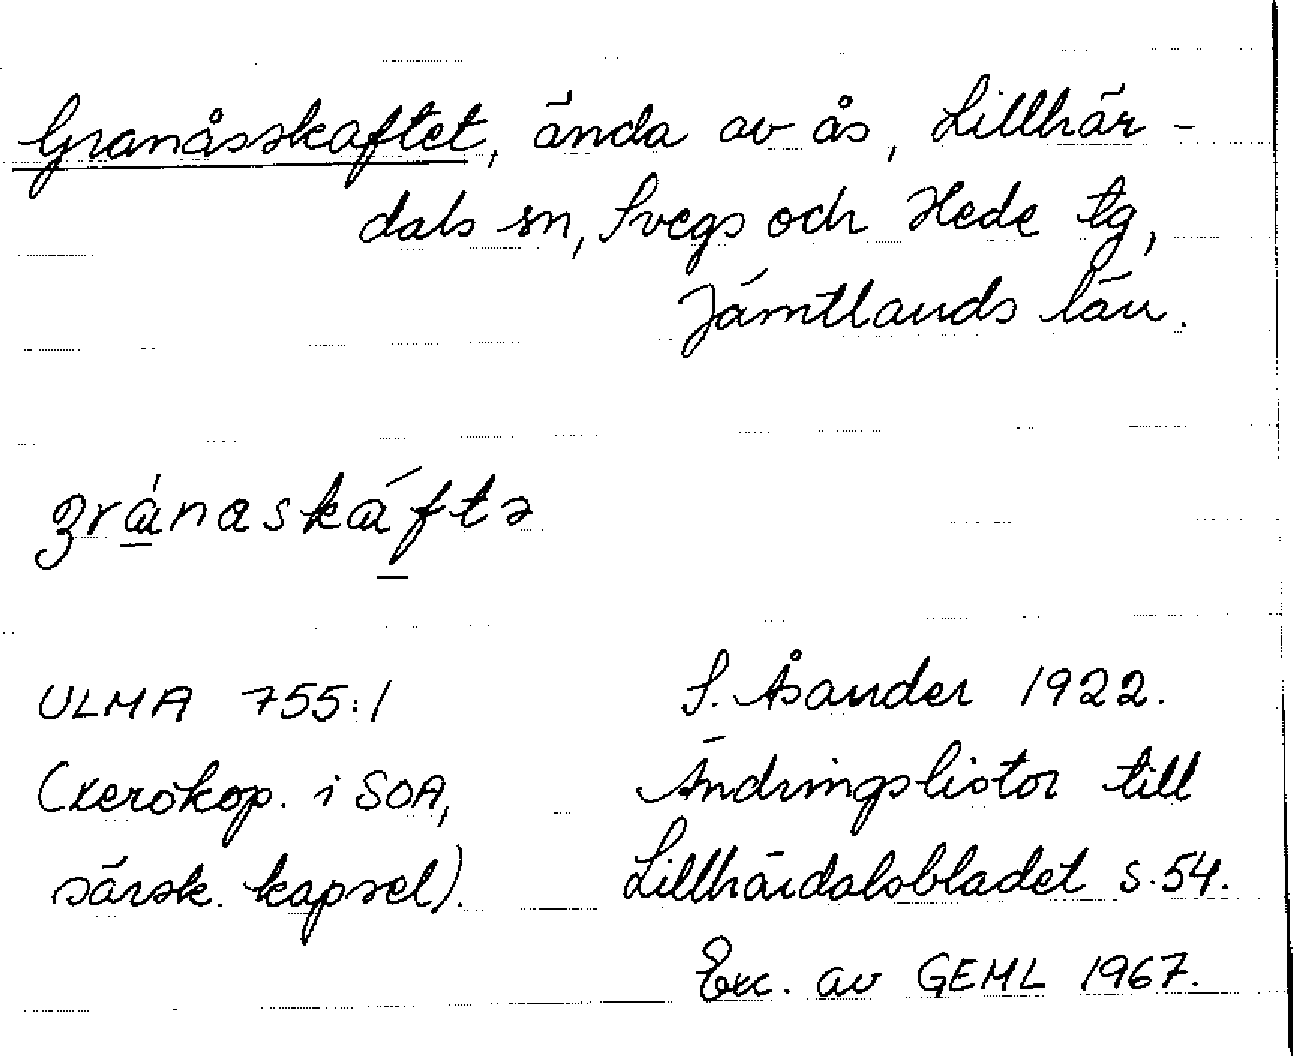 Granåsskaftet, ända av ås, Lillhär-
dals sn, Svegs och Hede tg,
Jämtlands län.
gránaskáftə
ULMA 755:1
(xerokop. i SOA,
särsk. kapsel).
S. Åsander 1922.
Ändringslistor till
Lillhärdalsbladet s.54.
Exc. av GEML 1967.